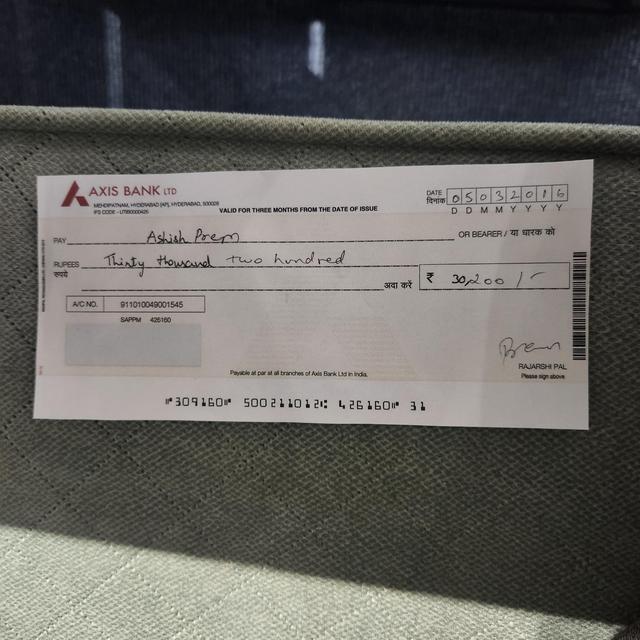 AXIS BANK LTD
MEHDIPATNAM, HYDERABAD [AP], HYDERABAD, 500028
IFS CODE - UTIB0000425
VALID FOR THREE MONTHS FROM THE DATE OF ISSUE
DATE दिनांक 05032016
D D M M Y Y Y Y
PAY Ashish Prem OR BEARER / या धारक को
RUPEES रुपये Thirty thousand two hundred
अदा करें ₹ 30,200/-
A/C NO. 911010049001545
SAPPM 426160
RAJARSHI PAL
Please sign above
Payable at par at all branches of Axis Bank Ltd in India.
⑈309160⑈ 500211012⑆ 426160⑈ 31